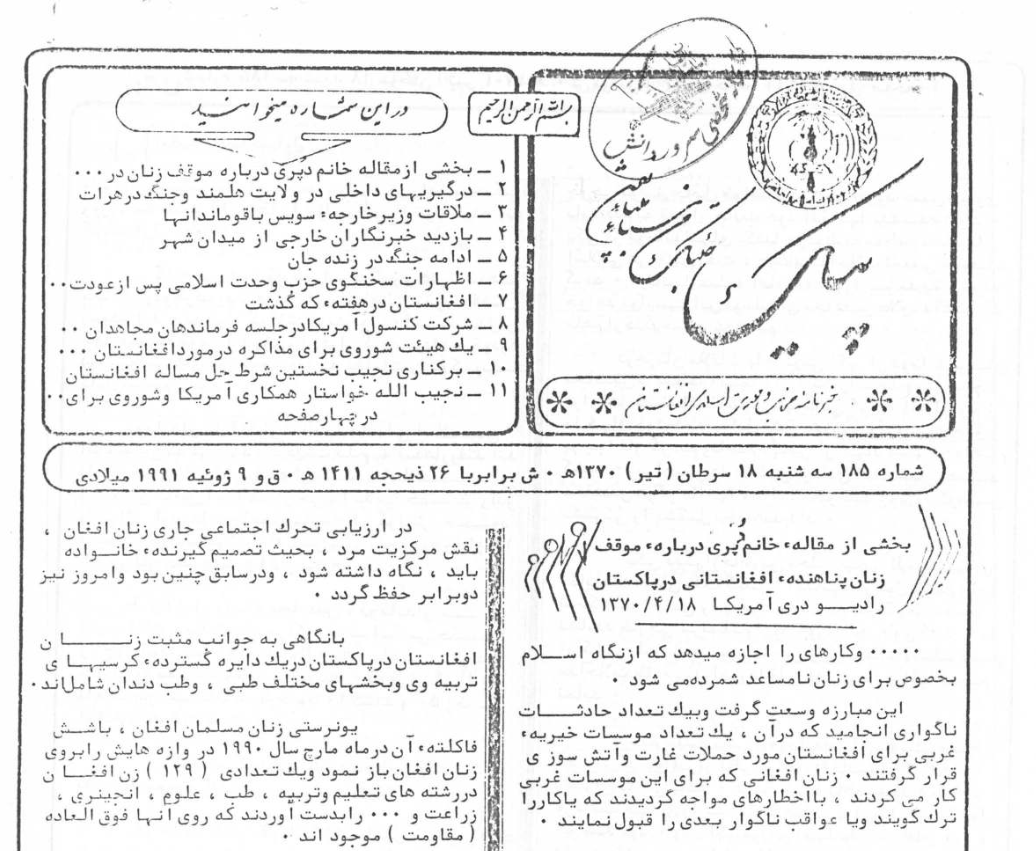 بسم الله الرحمن الرحیم
پیام
خبرنامه حزب وحدت اسلامی افغانستان
در این شماره میخوانید
۱ ــ بخشی ازمقاله خانم دُپری درباره موقف زنان در ۰۰۰
۲ ــ درگیریهای داخلی در ولایت هلمند وجنگ درهرات
۳ ــ ملاقات وزیرخارجهء سویس باقوماندانها
۴ ــ بازدید خبرنگاران خارجی از میدان شهر
۵ ــ ادامه جنگ در زنده جان
۶ ــ اظهارات سخنگوی حزب وحدت اسلامی پس ازعودت۰۰
۷ ــ افغانستان درهفتهء که گذشت
۸ ــ شرکت کنسول آمریکادرجلسه فرماندهان مجاهدان ۰۰
۹ ــ یك هیئت شوروی برای مذاکره درمورد افغانستان ۰۰۰
۱۰ ــ برکناری نجیب نخستین شرط حل مساله افغانستان
۱۱ ــ نجیب الله خواستار همکاری آمریکا وشوروی برای۰۰
در چهارصفحه
شماره ۱۸۵ سه شنبه ۱۸ سرطان ( تیر ) ۱۳۷۰هـ ۰ ش برابربا ۲۶ ذیحجه ۱۴۱۱ هـ ۰ ق و ۹ ژوئیه ۱۹۹۱ میلادی
بخشی از مقالهء خانم دُپری دربارهء موقف
زنان پناهندهء افغانستانی درپاکستان
رادیـــو دری آمریکا ۱۳۷۰/۴/۱۸
۰۰۰۰۰ وکارهای را اجازه میدهد که ازنگاه اســلام
بخصوص برای زنان نامساعد شمرده می شود ۰
این مبارزه وسعت گرفت وبیك تعداد حادثــــات
ناگواری انجامید که درآن ، یك تعداد موسسات خیریهء
غربی برای افغانستان مورد حملات غارت وآتش سوز ی
قرار گرفتند ۰ زنان افغانی که برای این موسسات غربی
کار می کردند ، بااخطارهای مواجه گردیدند که یاکاررا
ترك گویند ویا عواقب ناگوار بعدی را قبول نمایند ۰
در ارزیابی تحرك اجتماعی جاری زنان افغان ،
نقش مرکزیت مرد ، بحیث تصمیم گیرندهء خانــواده
باید ، نگاه داشته شود ، ودرسابق چنین بود وامروز نیز
دوبرابر حفظ گردد ۰
بانگاهی به جوانب مثبت زنـــــــا ن
افغانستان درپاکستان دریك دایره گسترده کرسیهـا ی
تربیه وی وبخشهای مختلف طبی ، وطب دندان شامل اند۰
یونرستی زنان مسلمان افغان ، باشـــش
فاکلتهء آن درماه مارچ سال ۱۹۹۰ در وازه هایش رابروی
زنان افغان باز نمود ویك تعدادی ( ۱۲۹ ) زن افغـــا ن
دررشته های تعلیم وتربیه ، طب ، علوم ، انجینری ،
زراعت و ۰۰۰ رابدست آوردند که روی انها فوق العاده
( مقاومت ) موجود اند ۰